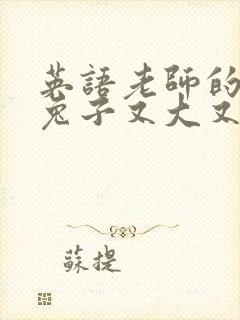 英語老師的
兔子又大又
蘇提